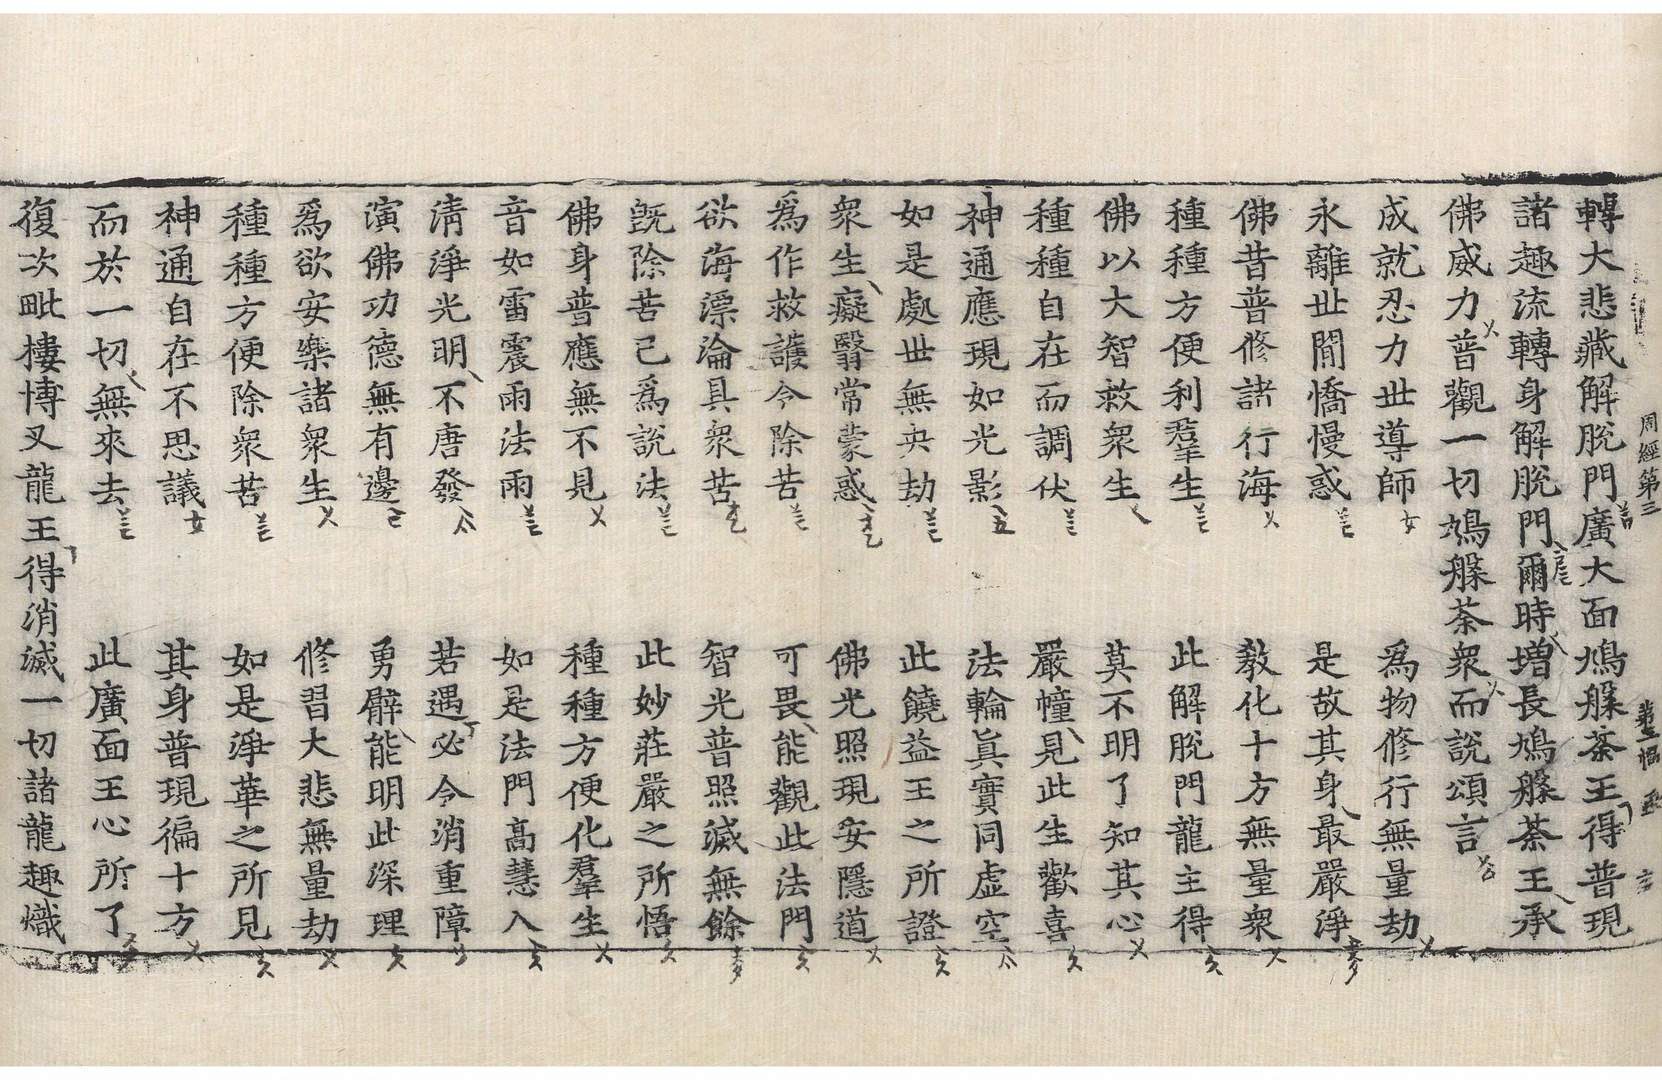 周經第三
轉大悲藏解脫門廣大面鳩槃荼王得普現
諸趣流轉身解脫門爾時增長鳩槃荼王承
佛威力普觀一切鳩槃荼衆而說頌言
成就忍力世導師 爲物修行無量劫
永離世閒憍慢惑 是故其身最嚴淨
佛昔普修諸行海 敎化十方無量衆
種種方便利羣生 此解脫門龍主得
佛以大智救衆生 莫不明了知其心
種種自在而調伏 嚴幢見此生歡喜
神通應現如光影 法輪眞實同虛空
如是處世無央劫 此饒益王之所證
衆生癡翳常蒙惑 佛光照現安隱道
爲作救護令除苦 可畏能觀此法門
欲海漂淪具衆苦 智光普照滅無餘
旣除苦已爲說法 此妙莊嚴之所悟
佛身普應無不見 種種方便化羣生
音如雷震雨法雨 如是法門高慧入
淸淨光明不唐發 若遇必令消重障
演佛功德無有邊 勇臂能明此深理
爲欲安樂諸衆生 修習大悲無量劫
種種方便除衆苦 如是淨華之所見
神通自在不思議 其身普現徧十方
而於一切無來去 此廣面王心所了
復次毗樓博叉龍王得消滅一切諸龍趣熾